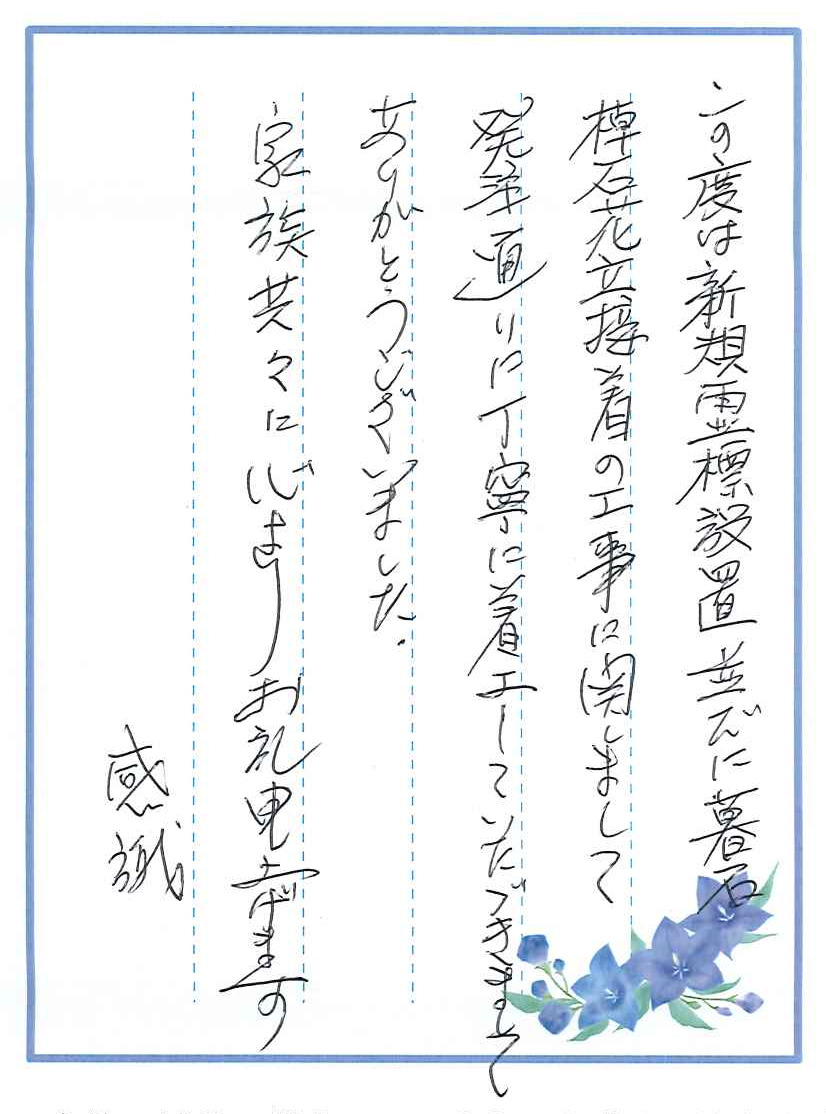 この度は新規霊標設置並びに墓石
棹石花立接着の工事に関しまして
発注通りに丁寧に着工していただきまして
ありがとうございました.
家族共々に心よりお礼申上げます
感謝